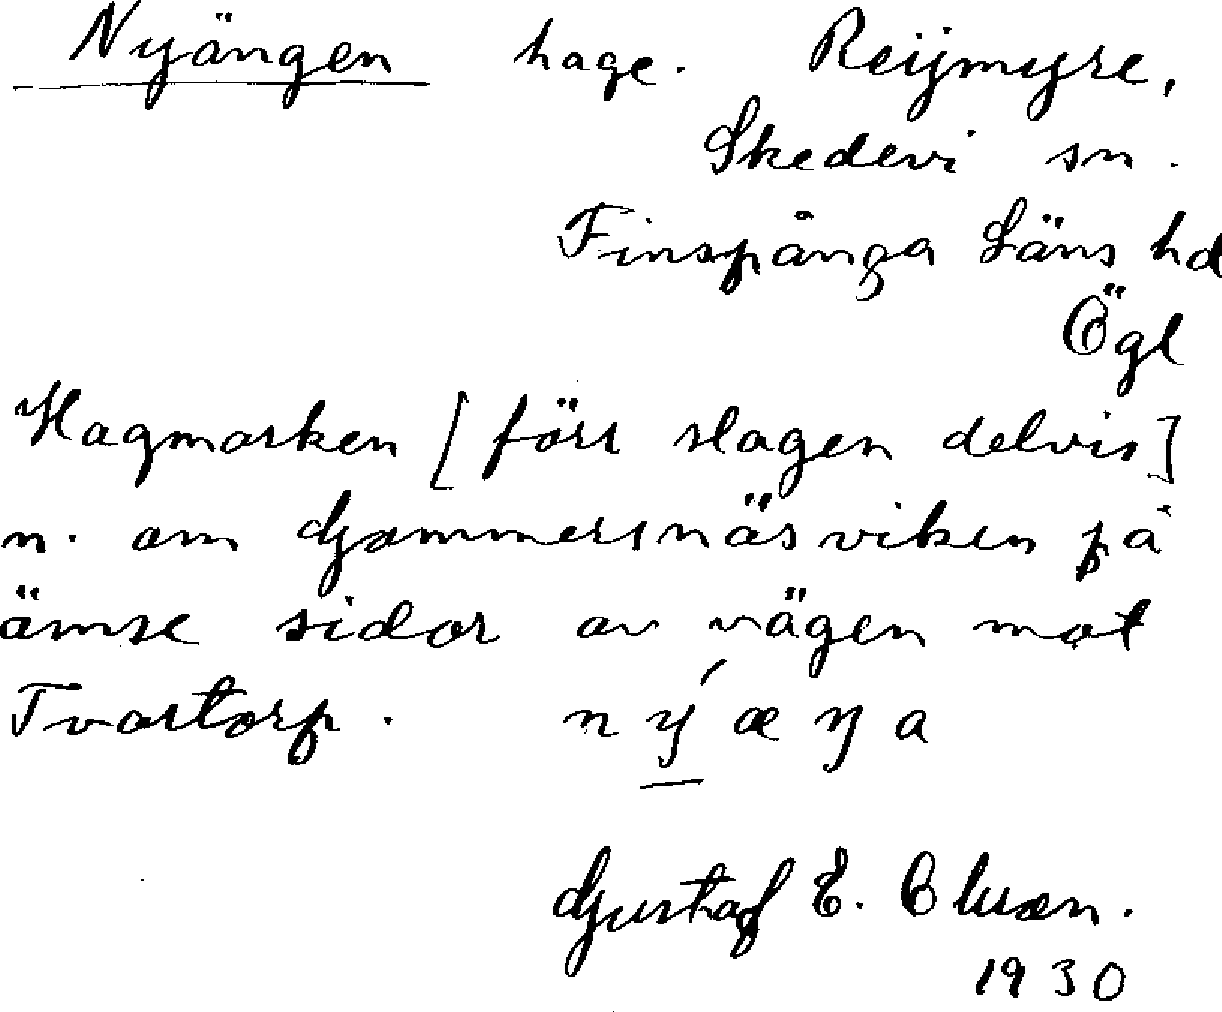 Nyängen hage. Reijmyre,
Skedevi sn.
Finspånga Läns hd
Ögl
Hagmarken [förr slagen delvis]
n. om Gammersnäsviken på
ömse sidor av vägen mot
Tvartorp. nýæŋa
Gustaf E.
1930